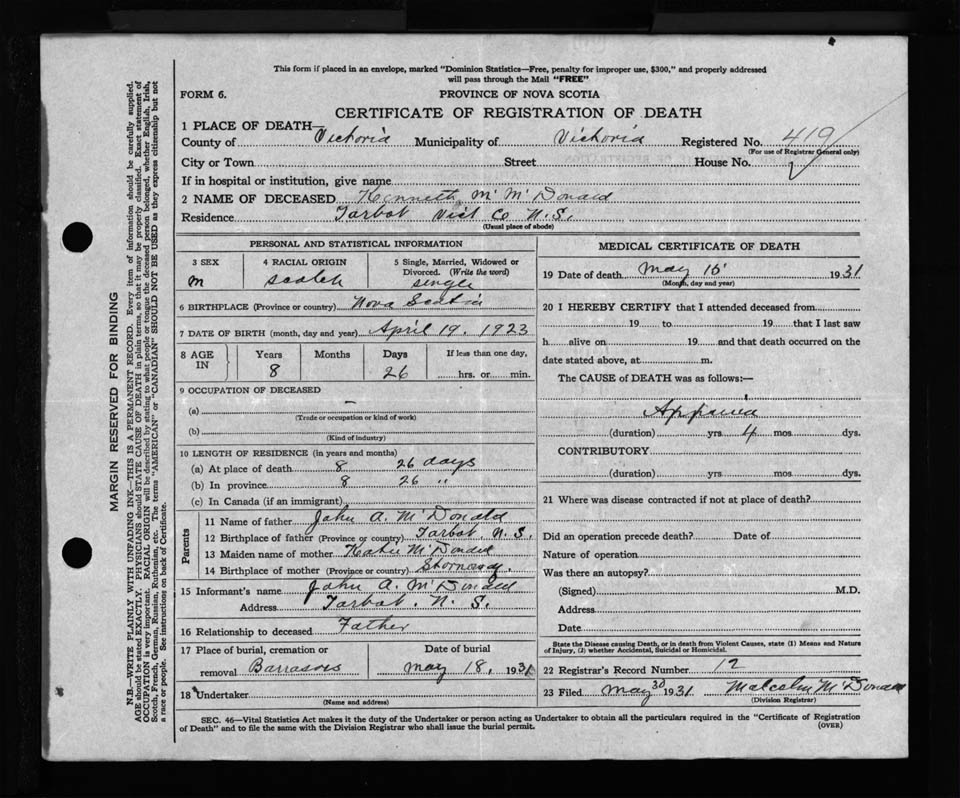 This form if placed in an envelope, marked "Dominion Statistics—Free, penalty for improper use, $300," and properly addressed
will pass through the Mail "FREE"
FORM 6.
PROVINCE OF NOVA SCOTIA
CERTIFICATE OF REGISTRATION OF DEATH
1 PLACE OF DEATH—
County of Victoria Municipality of Victoria Registered No. 419
(For use of Registrar General only)
City or Town Street House No.
If in hospital or institution, give name
2 NAME OF DECEASED Kenneth Mc McDonald
Residence Tarbot Vict Co N.S.
(Usual place of abode)
PERSONAL AND STATISTICAL INFORMATION
3 SEX 4 RACIAL ORIGIN 5 Single, Married, Widowed or
Divorced. (Write the word)
m scotch single
6 BIRTHPLACE (Province or country) Nova Scotia
7 DATE OF BIRTH (month, day and year) April 19. 1923
8 AGE IN Years Months Days If less than one day,
8 26 hrs. or min.
9 OCCUPATION OF DECEASED
(a) —
(Trade or occupation or kind of work)
(b)
(Kind of industry)
10 LENGTH OF RESIDENCE (in years and months)
(a) At place of death 8 26 days
(b) In province 8 26 "
(c) In Canada (if an immigrant)
Parents
11 Name of father John A. McDonald
12 Birthplace of father (Province or country) Tarbot. N.S.
13 Maiden name of mother Katie McDonald
14 Birthplace of mother (Province or country)
15 Informant's name John A. McDonald
Address Tarbot. N.S.
16 Relationship to deceased Father
17 Place of burial, cremation or Date of burial
removal May 18, 1931
18 Undertaker
(Name and address)
MEDICAL CERTIFICATE OF DEATH
19 Date of death May 15 1931
(Month, day and year)
20 I HEREBY CERTIFY that I attended deceased from
19 to 19 that I last saw
h alive on 19 and that death occurred on the
date stated above, at m.
The CAUSE of DEATH was as follows:—
(duration) yrs 4 mos dys.
CONTRIBUTORY
(duration) yrs mos dys.
21 Where was disease contracted if not at place of death?
Did an operation precede death? Date of
Nature of operation
Was there an autopsy?
(Signed) M.D.
Address
Date
State the Disease causing Death, or in death from Violent Causes, state (1) Means and Nature
of Injury, (2) whether Accidental, Suicidal or Homicidal.
22 Registrar's Record Number 12
23 Filed May 30 1931. Malcolm McDonald
(Division Registrar)
SEC. 46—Vital Statistics Act makes it the duty of the Undertaker or person acting as Undertaker to obtain all the particulars required in the "Certificate of Registration
of Death" and to file the same with the Division Registrar who shall issue the burial permit.
(OVER)
MARGIN RESERVED FOR BINDING
N.B.—WRITE PLAINLY WITH UNFADING INK—THIS IS A PERMANENT RECORD. Every item of information should be carefully supplied.
AGE should be stated EXACTLY. PHYSICIANS should STATE CAUSE OF DEATH in plain terms, so that it may be properly classified. Exact statement of
OCCUPATION is very important. RACIAL ORIGIN will be described by stating to what people or tongue the deceased person belonged, whether English, Irish,
Scotch, French, German, Russian, Ruthenian, etc. The terms "AMERICAN" or "CANADIAN" SHOULD NOT BE USED as they express citizenship but not
a race or people. See instructions on back of Certificate.